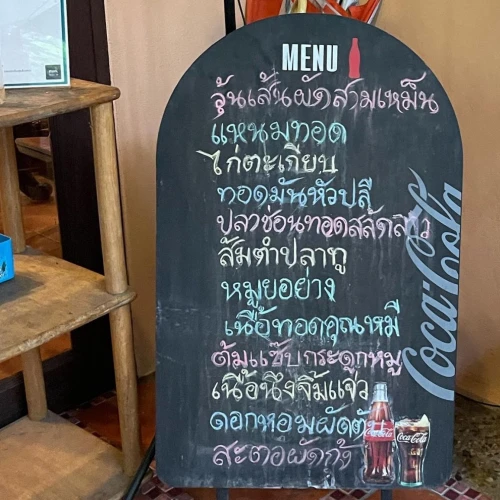 MENU
วุ้นเส้นผัดสามเหม็น
แหนมทอด
ไก่ตะเกียบ
ทอดมันหัวปลี
ปลาช่อนทอดสลัดลาว
ส้มตำปลาทู
หมูยอย่าง
เนื้อทอดคุณหมี
ต้มแซ่บกระดูกหมู
เนื้อนึ่งจิ้มแจ่ว
ดอกหอมผัดตับ
สะตอผัดกุ้ง
Coca-Cola
Coca-Cola
Coca-Cola